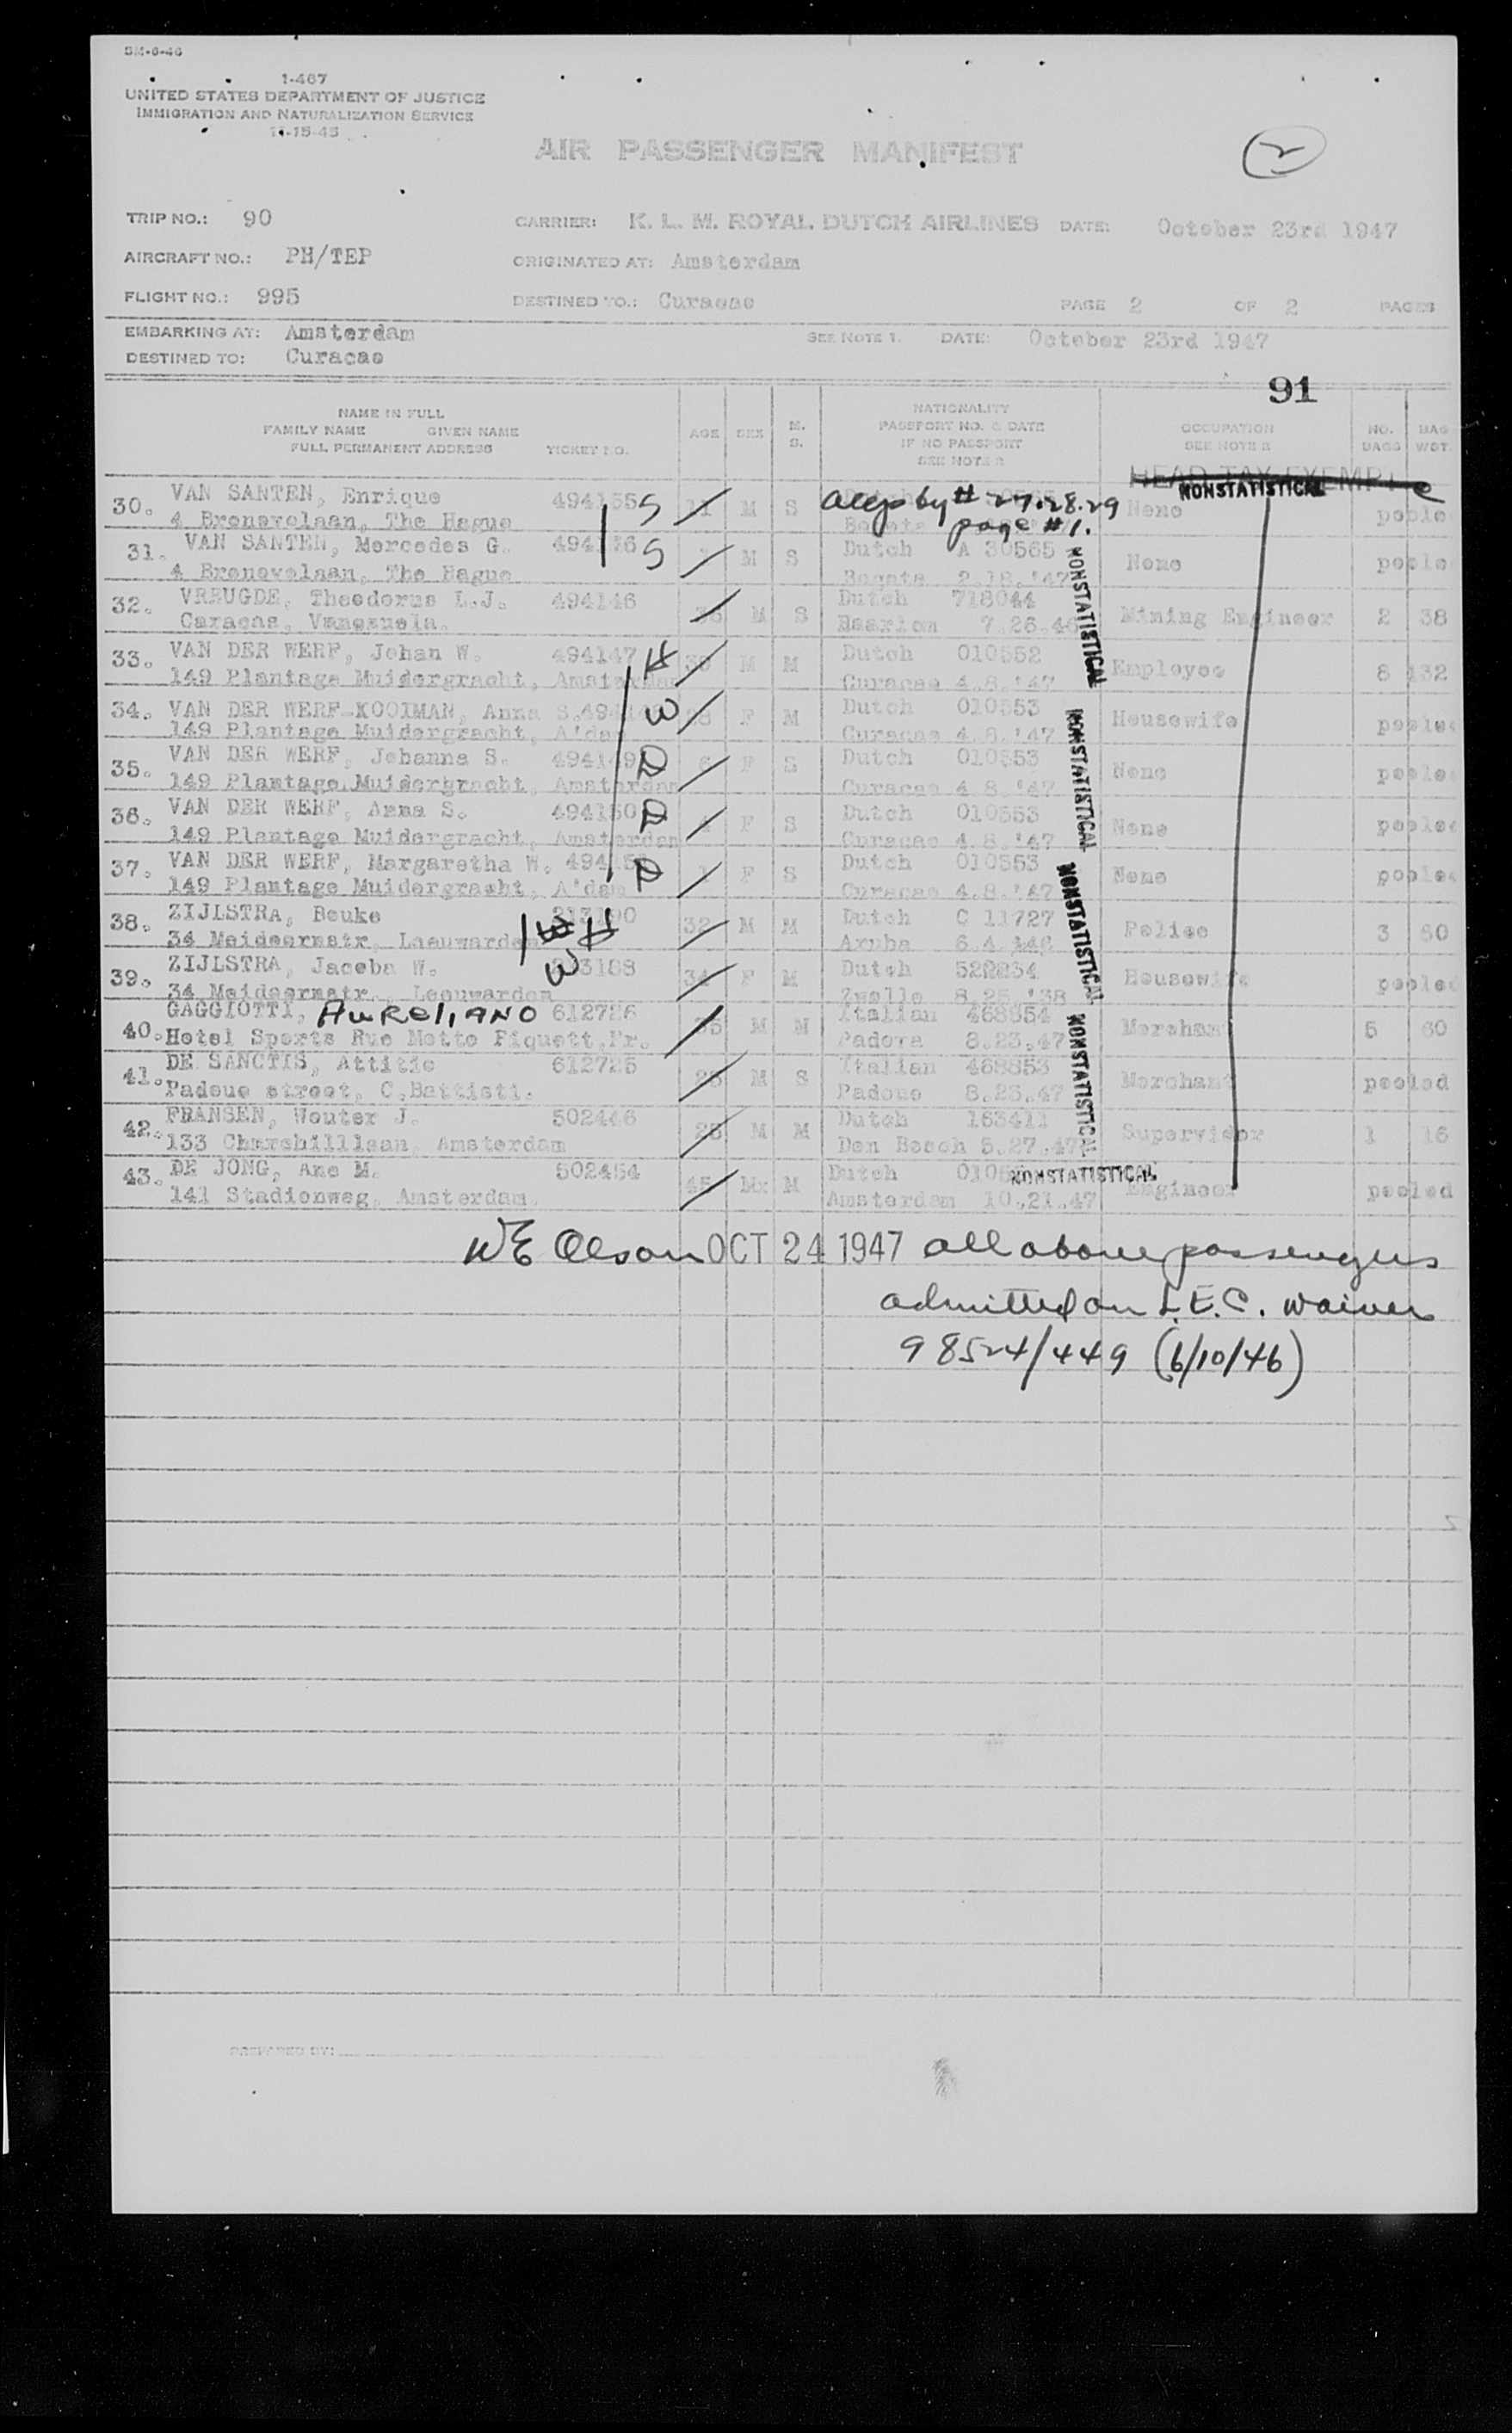 1-467
UNITED STATES DEPARTMENT OF JUSTICE
IMMIGRATION AND NATURALIZATION SERVICE
AIR PASSENGER MANIFEST
2
TRIP NO.: 90 CARRIER: K. L. M. ROYAL DUTCH AIRLINES DATE: October 23rd 1947
AIRCRAFT NO.: PH/TEP ORIGINATED AT: Amsterdam
FLIGHT NO.: 995 DESTINED TO.: Curacao PAGE 2 OF 2 PAGES
EMBARKING AT: Amsterdam SEE NOTE 1. DATE: October 23rd 1947
DESTINED TO: Curacao
91
NAME IN FULL
FAMILY NAME GIVEN NAME
FULL PERMANENT ADDRESS TICKET NO.
AGE SEX M. S.
NATIONALITY
PASSPORT NO. & DATE
IF NO PASSPORT
SEE NOTE
OCCUPATION
SEE NOTE
NO. BAGS BAG WGT.
HEAD TAX EXEMPT
NONSTATISTICAL
30. VAN SANTEN, Enrique S M S by # 27.28.29 None
4 Bronovolaan, The Hague Bogota page #1.
31. VAN SANTEN, Mercedes G. S M S Dutch A 30565 None
4 Bronovolaan, The Hague Bogota 2.18.'47
NONSTATISTICAL
32. VREUGDE, Theodorus L.J. 494146 M S Dutch 718044 Mining Engineer 2 38
Caracas, Venezuela.
33. VAN DER WERF, Johan W. 494147 H M M Dutch 010552 Employee 8 132
149 Plantage Muidergracht, Curacao 4.8.'47
34. VAN DER WERF-KOOIMAN, Anna S. W F M Dutch 010553 Housewife
149 Plantage Muidergracht, A'dam Curacao 4.8.'47
NONSTATISTICAL
35. VAN DER WERF, Johanna S. 494149 D F S Dutch 010553 None
149 Plantage Muidergracht, Amsterdam Curacao 4.8.'47
36. VAN DER WERF, Anna S. 494150 D F S Dutch 010553 None
149 Plantage Muidergracht, Amsterdam Curacao 4.8.'47
37. VAN DER WERF, Margaretha W. D F S Dutch 010553 None
149 Plantage Muidergracht, A'dam Curacao 4.8.'47
NONSTATISTICAL
38. ZIJLSTRA, Beuke H 32 M M Dutch C 11727 Police 3 60
34 Leeuwarden Aruba
39. ZIJLSTRA, Jacoba W. W 34 F M Dutch Housewife pooled
34 Leeuwarden Zwolle 8.25.'38
40. GAGGIOTTI, AURELIANO 612726 M M Italian 468854 Merchant 5 60
Hotel Sports Rue Motte Piquett.Fr. Padova 8.23.47
NONSTATISTICAL
41. DE SANCTIS, Attitio 612725 M S Italian 468853 Merchant pooled
Padoue street, C.Battisti. Padoue 8.23.47
42. FRANSEN, Wouter J. 502446 M M Dutch 163411 Supervisor 1 16
133 Churchilllaan, Amsterdam Den Bosch 5.27.47
43. DE JONG, Ane M. 502454 45 M Dutch NONSTATISTICAL Engineer pooled
141 Stadionweg, Amsterdam. Amsterdam 10.21.47
WE Olson OCT 24 1947 all above passengers
admitted on waiver
98524/449 (6/10/46)
PREPARED BY: